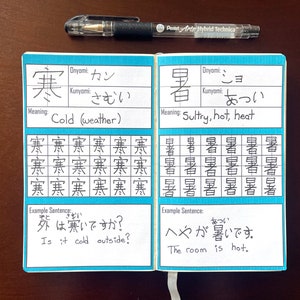 Pentel Arts Hybrid Technica
寒
Onyomi: カン
Kunyomi: さむい
Meaning:
Cold (weather)
寒 寒 寒 寒 寒 寒
寒 寒 寒 寒 寒 寒
寒 寒 寒 寒 寒 寒
Example Sentence:
さむ
外は寒いですか?
Is it cold outside?
暑
Onyomi: ショ
Kunyomi: あつい
Meaning:
Sultry, hot, heat
暑 暑 暑 暑 暑 暑
暑 暑 暑 暑 暑 暑
暑 暑 暑 暑 暑 暑
Example Sentence:
あつい
へやが暑いです。
The room is hot.